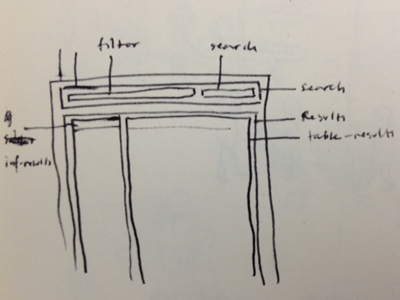 filter search
search
Results
table-results
inf-results